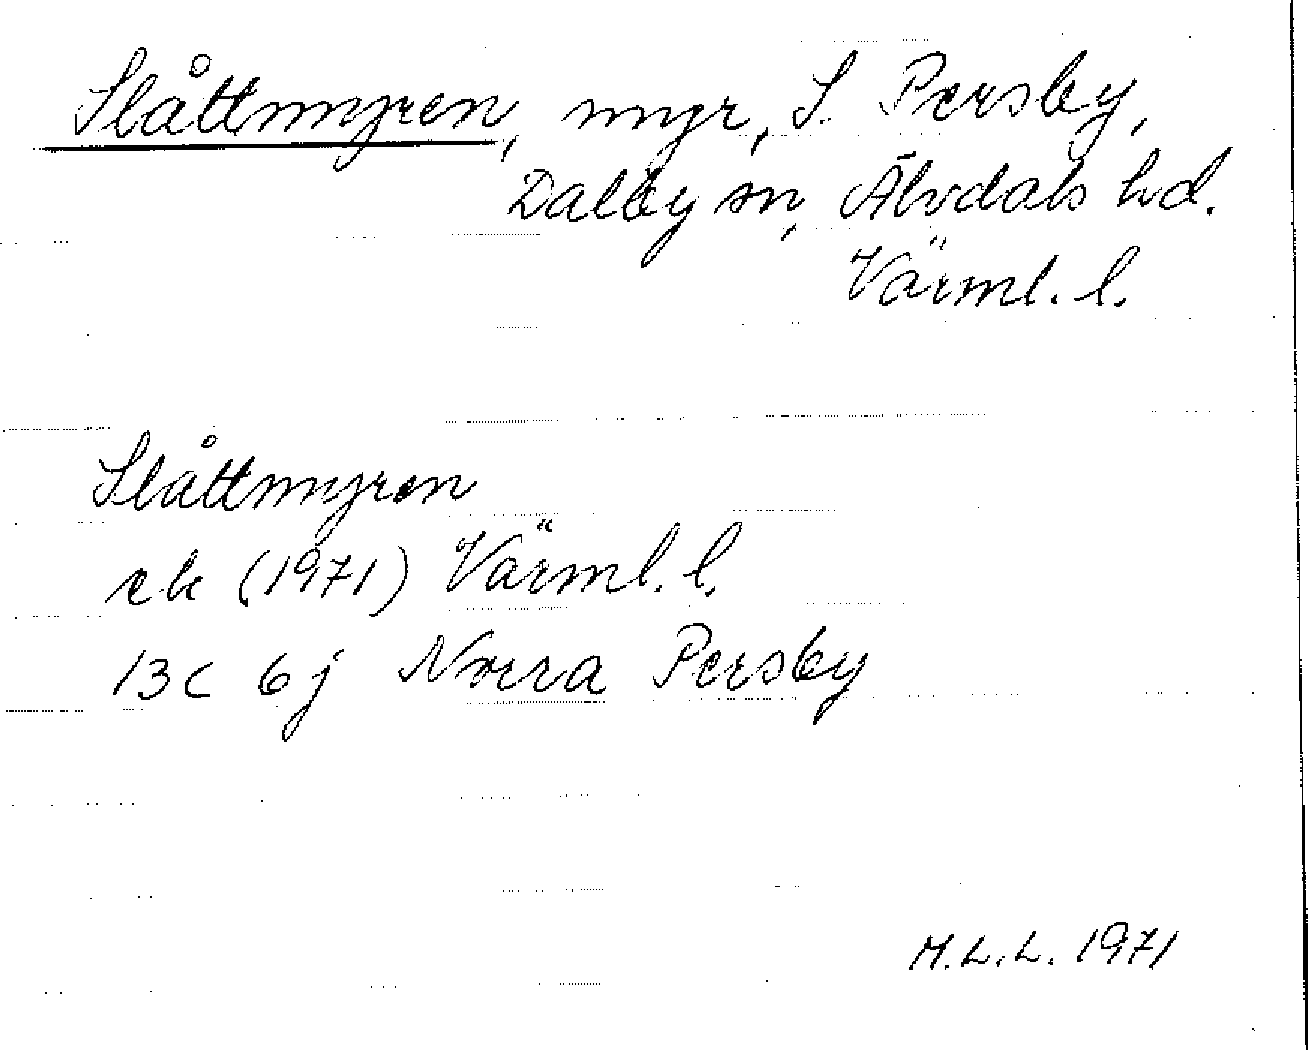 Slåttmyren, myr, S. Persby,
Dalby sn, Älvdals hd.
Värml. l.
Slåttmyren
ek (1971) Värml. l.
13c 6j Norra Persby
M.L.L. 1971